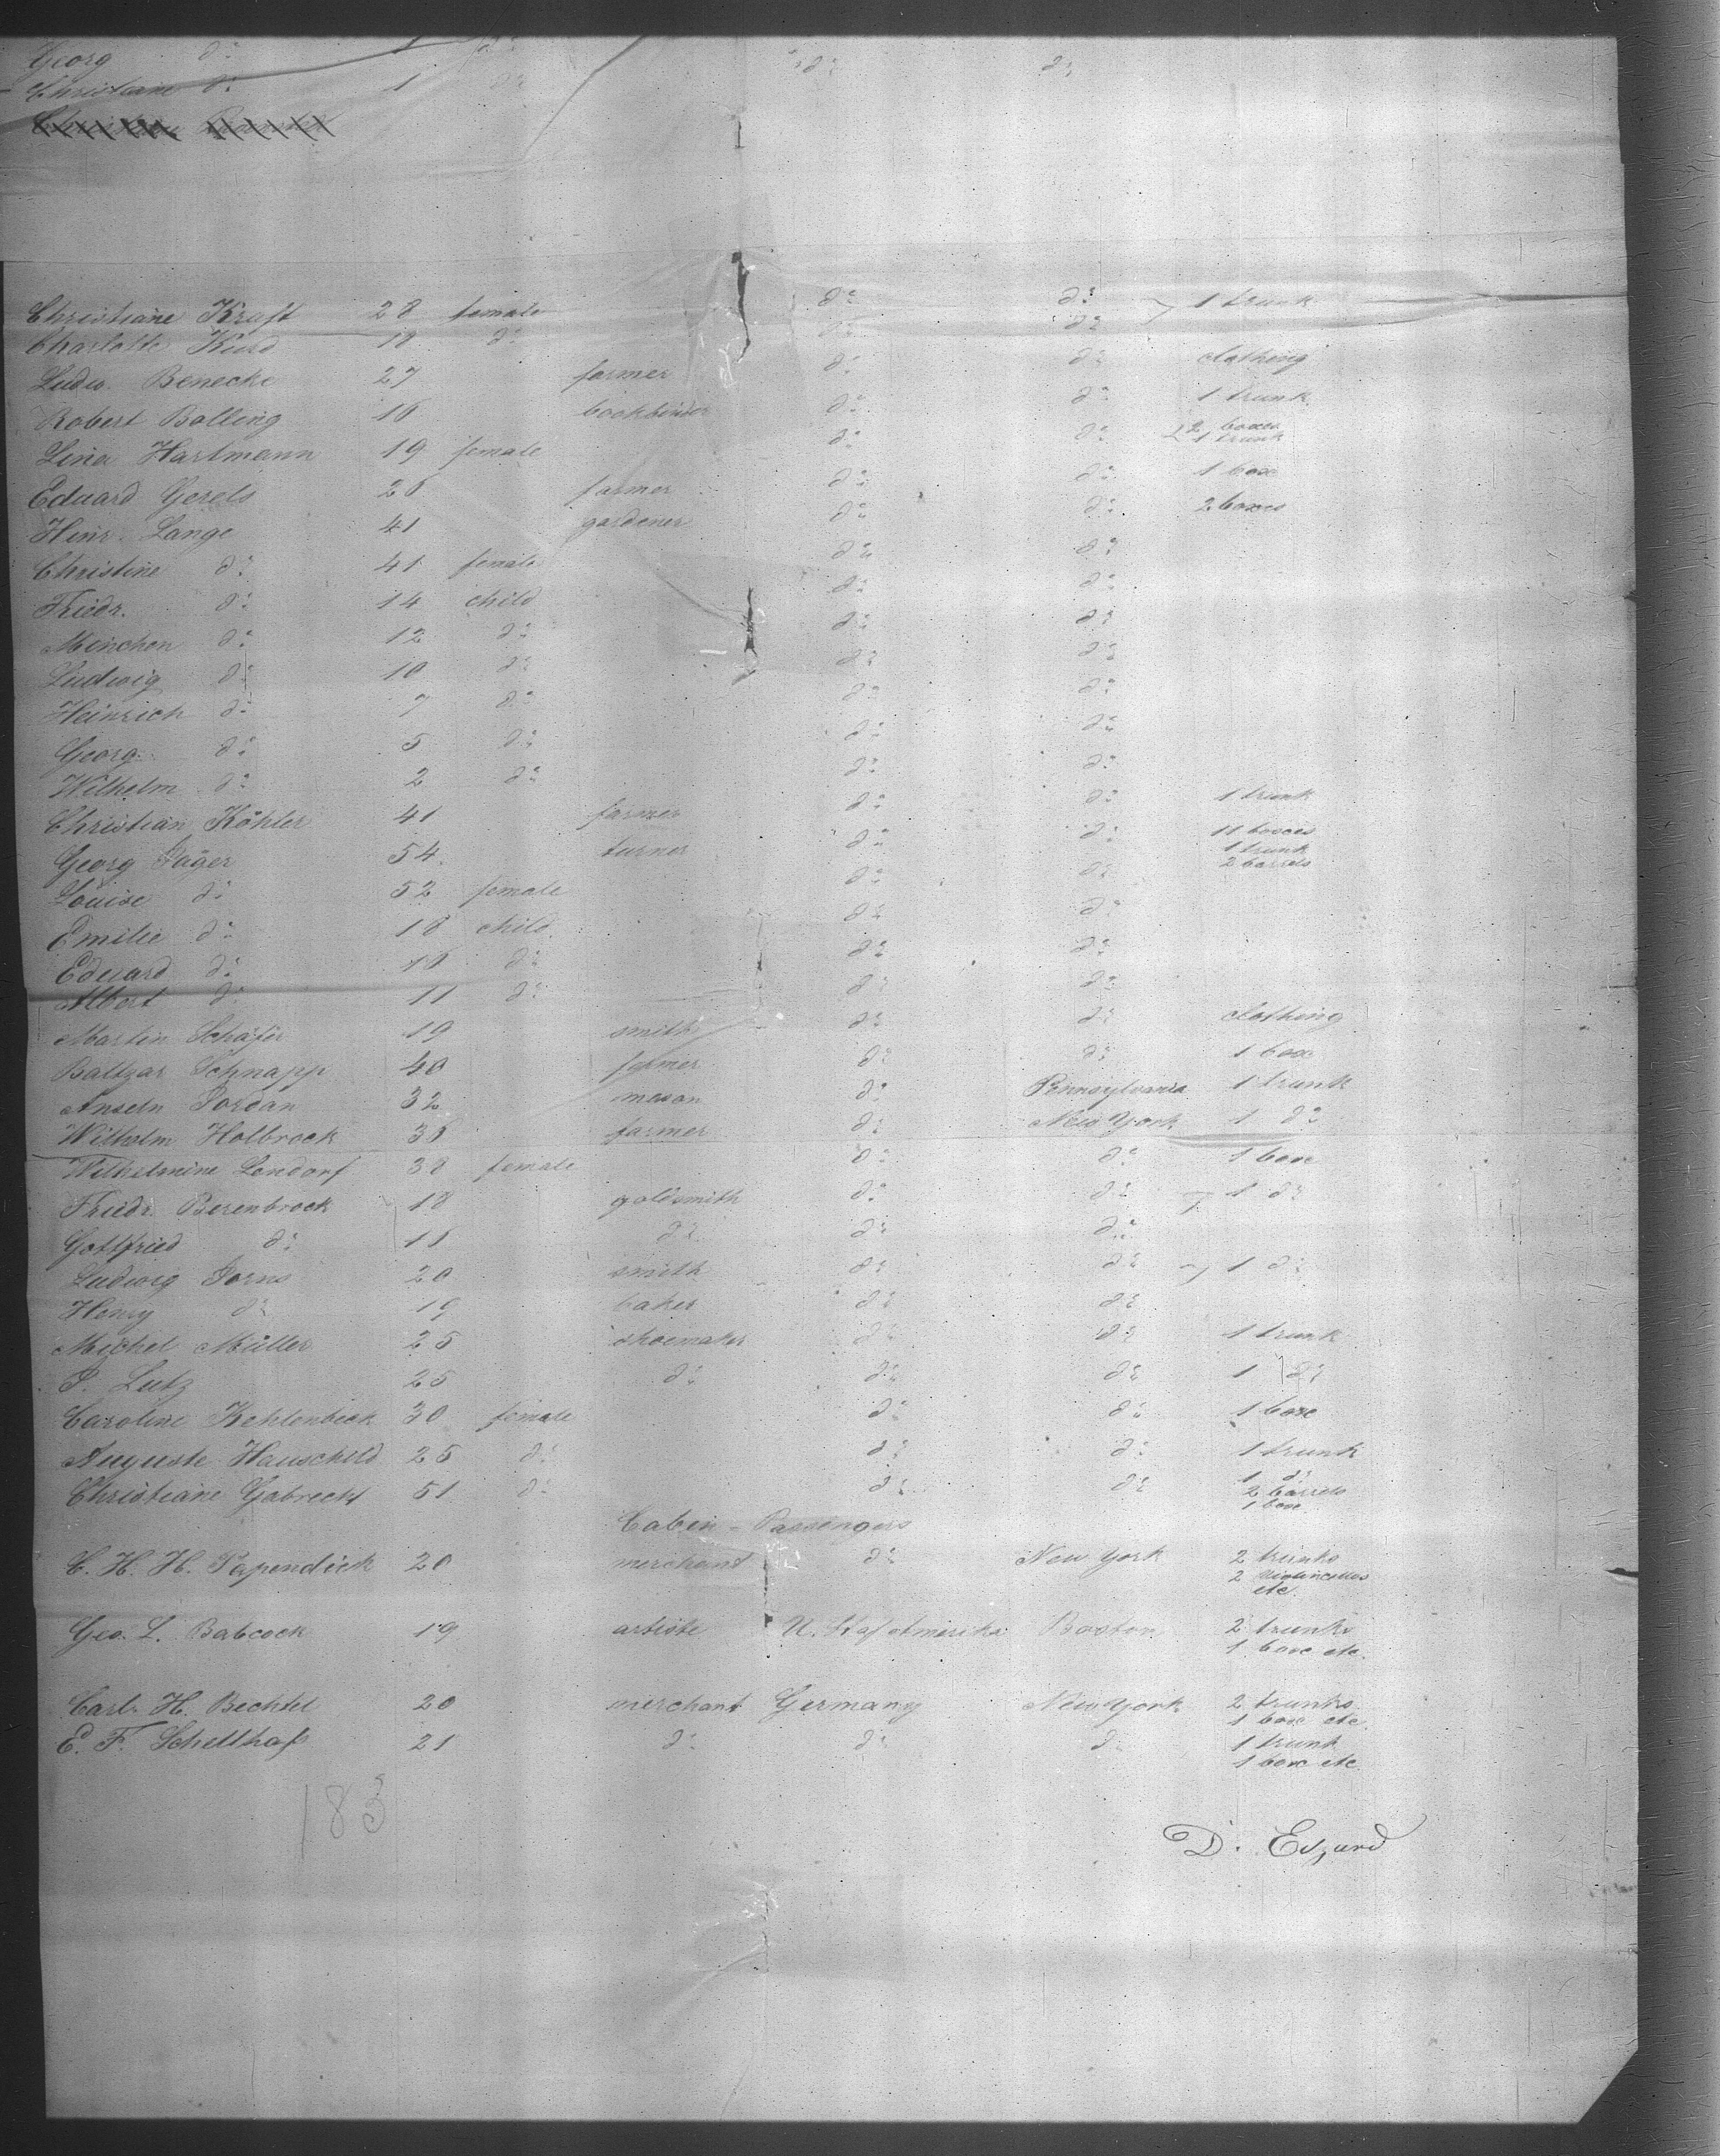 Georg do
Christiane do 1 do do do
Christiane Kraft 28 female do do 1 trunk
Charlotte 18 do do do
Ludw. Benecke 27 farmer do do clothing
Robert Bolling 16 bookbinder do do 1 trunk
Lina Hartmann 19 female do do 2 boxes 1 trunk
Eduard Gerels 26 farmer do do 1 box
Heinr. Lange 41 gardener do do 2 boxes
Christine do 41 female do do
Friedr. do 14 child do do
Minchen do 12 do do do
Ludwig do 10 do do do
Heinrich do 7 do do do
Georg do 5 do do do
Wilhelm do 2 do do do
Christian Köhler 41 farmer do do 1 trunk
Georg Jäger 54 turner do do 11 boxes
1 trunk
2 barrels
Louise do 52 female do do
Emilie do 18 child do do
Eduard do 16 do do do
Albert do 11 do do do
Martin Schäfer 19 smith do do clothing
Baltzar Schnapp 40 farmer do do 1 box
Anseln Jordan 32 mason do Pennsylvania 1 trunk
Wilhelm Holbrock 36 farmer do New York 1 do
Wilhelmine Londorf 38 female do do 1 box
Friedr. Berenbrock 18 goldsmith do do 1 do
Gottfried do 11 do do do
Ludwig Jorns 20 smith do do 1 do
Henry do 19 baker do do
Michel Müller 25 shoemaker do do 1 trunk
P. Lutz 25 do do do 1 do
Caroline Kehlenbeck 30 female do do 1 box
Auguste Hauschild 25 do do do 1 trunk
Christiane Gobrecht 51 do do do 1 do
2 barrels
1 box
Cabin - Passengers
C. H. H. Papendieck 20 merchant do New York 2 trunks
2 violincellos
etc.
Geo. L. Babcock 19 artiste Boston 2 trunks
1 box etc.
Carl. H. Bechtel 20 merchant Germany New York 2 trunks
1 box etc.
E. F. Schellhaß 21 do do do 1 trunk
1 box etc.
183
D. Edzard